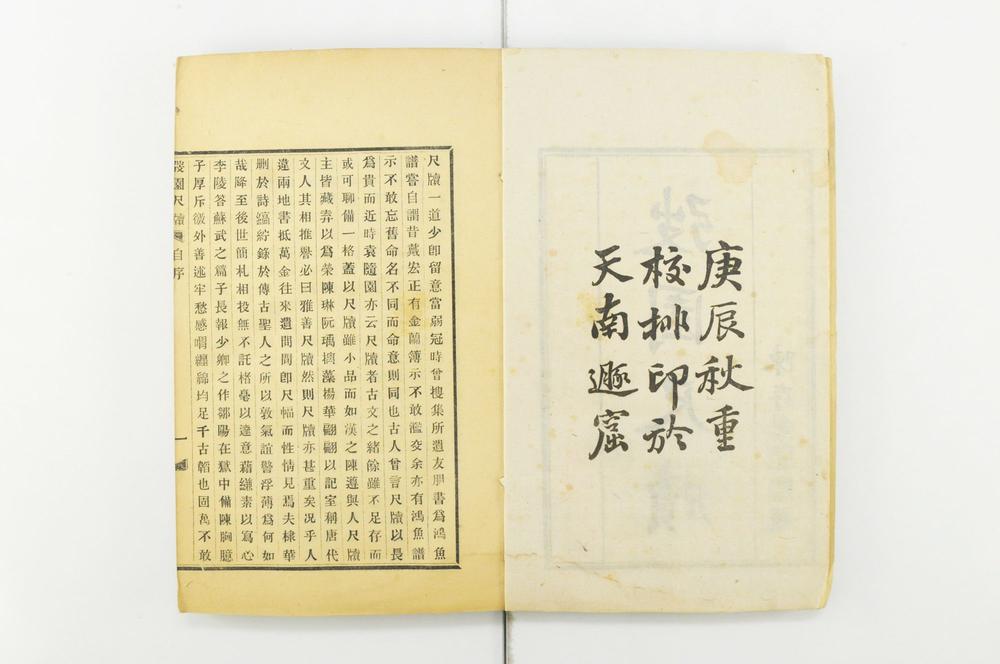 庚辰秋重
校排印於
天南遯窟
尺牘一道少卽留意當弱冠時曾搜集所遺友朋書爲鴻魚
譜嘗自謂昔戴宏正有金蘭簿示不敢濫交余亦有鴻魚譜
示不敢忘舊命名不同而命意則同也古人曾言尺牘以長
爲貴而近時袁隨園亦云尺牘者古文之緒餘雖不足存而
或可聊備一格蓋以尺牘雖小品而如漢之陳遵與人尺牘
主皆藏弆以爲榮陳琳阮瑀摛藻揚華翩翩以記室稱唐代
文人其相推譽必曰雅善尺牘然則尺牘亦甚重矣况乎人
違兩地書抵萬金往來遺問間卽尺幅而性情見焉夫棣華
删於詩縞紵錄於傳古聖人之所以敦氣誼警浮薄爲何如
哉降至後世簡札相投無不託楮毫以達意藉縑素以寫心
李陵答蘇武之篇子長報少卿之作鄒陽在獄中備陳胸臆
子厚斥徼外善述牢愁感喟纏綿均足千古韜也固萬不敢
弢園尺牘 自序 一